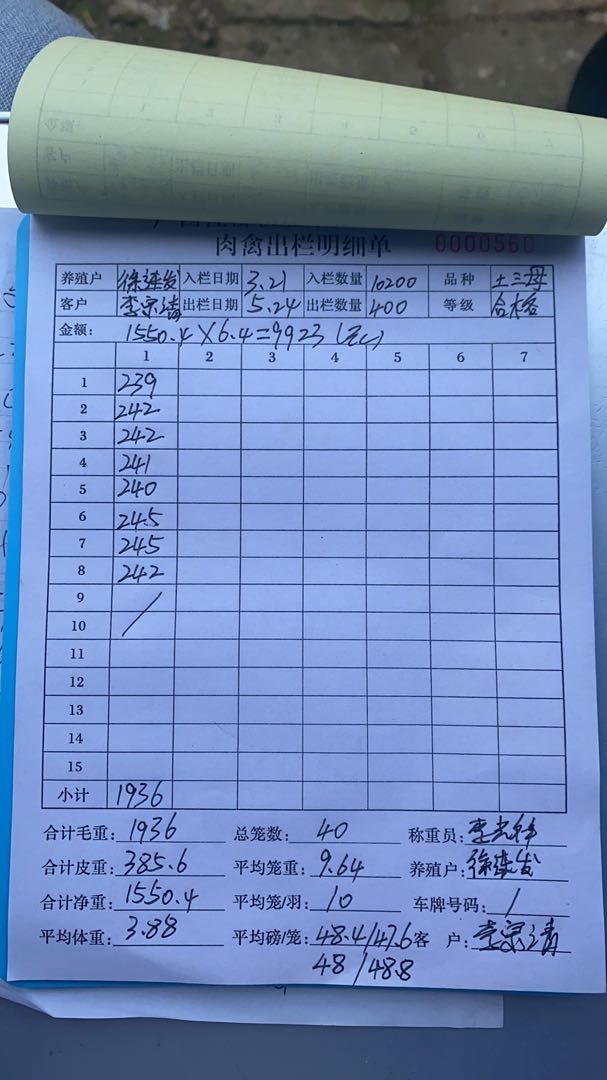 肉禽出栏明细单 0000560
养殖户 徐连发 入栏日期 3.21 入栏数量 10200 品种 土三母
客户 李宗清 出栏日期 5.24 出栏数量 400 等级 合格
金额: 1550.4×6.4=9923(元)
1 2 3 4 5 6 7
1 239
2 242
3 242
4 241
5 240
6 245
7 245
8 242
9
10
11
12
13
14
15
小计 1936
合计毛重: 1936 总笼数: 40 称重员:
合计皮重: 385.6 平均笼重: 9.64 养殖户: 徐连发
合计净重: 1550.4 平均笼/羽: 10 车牌号码: /
平均体重: 3.88 平均磅/笼: 48.4/47.6 客 户: 李宗清
48/48.8